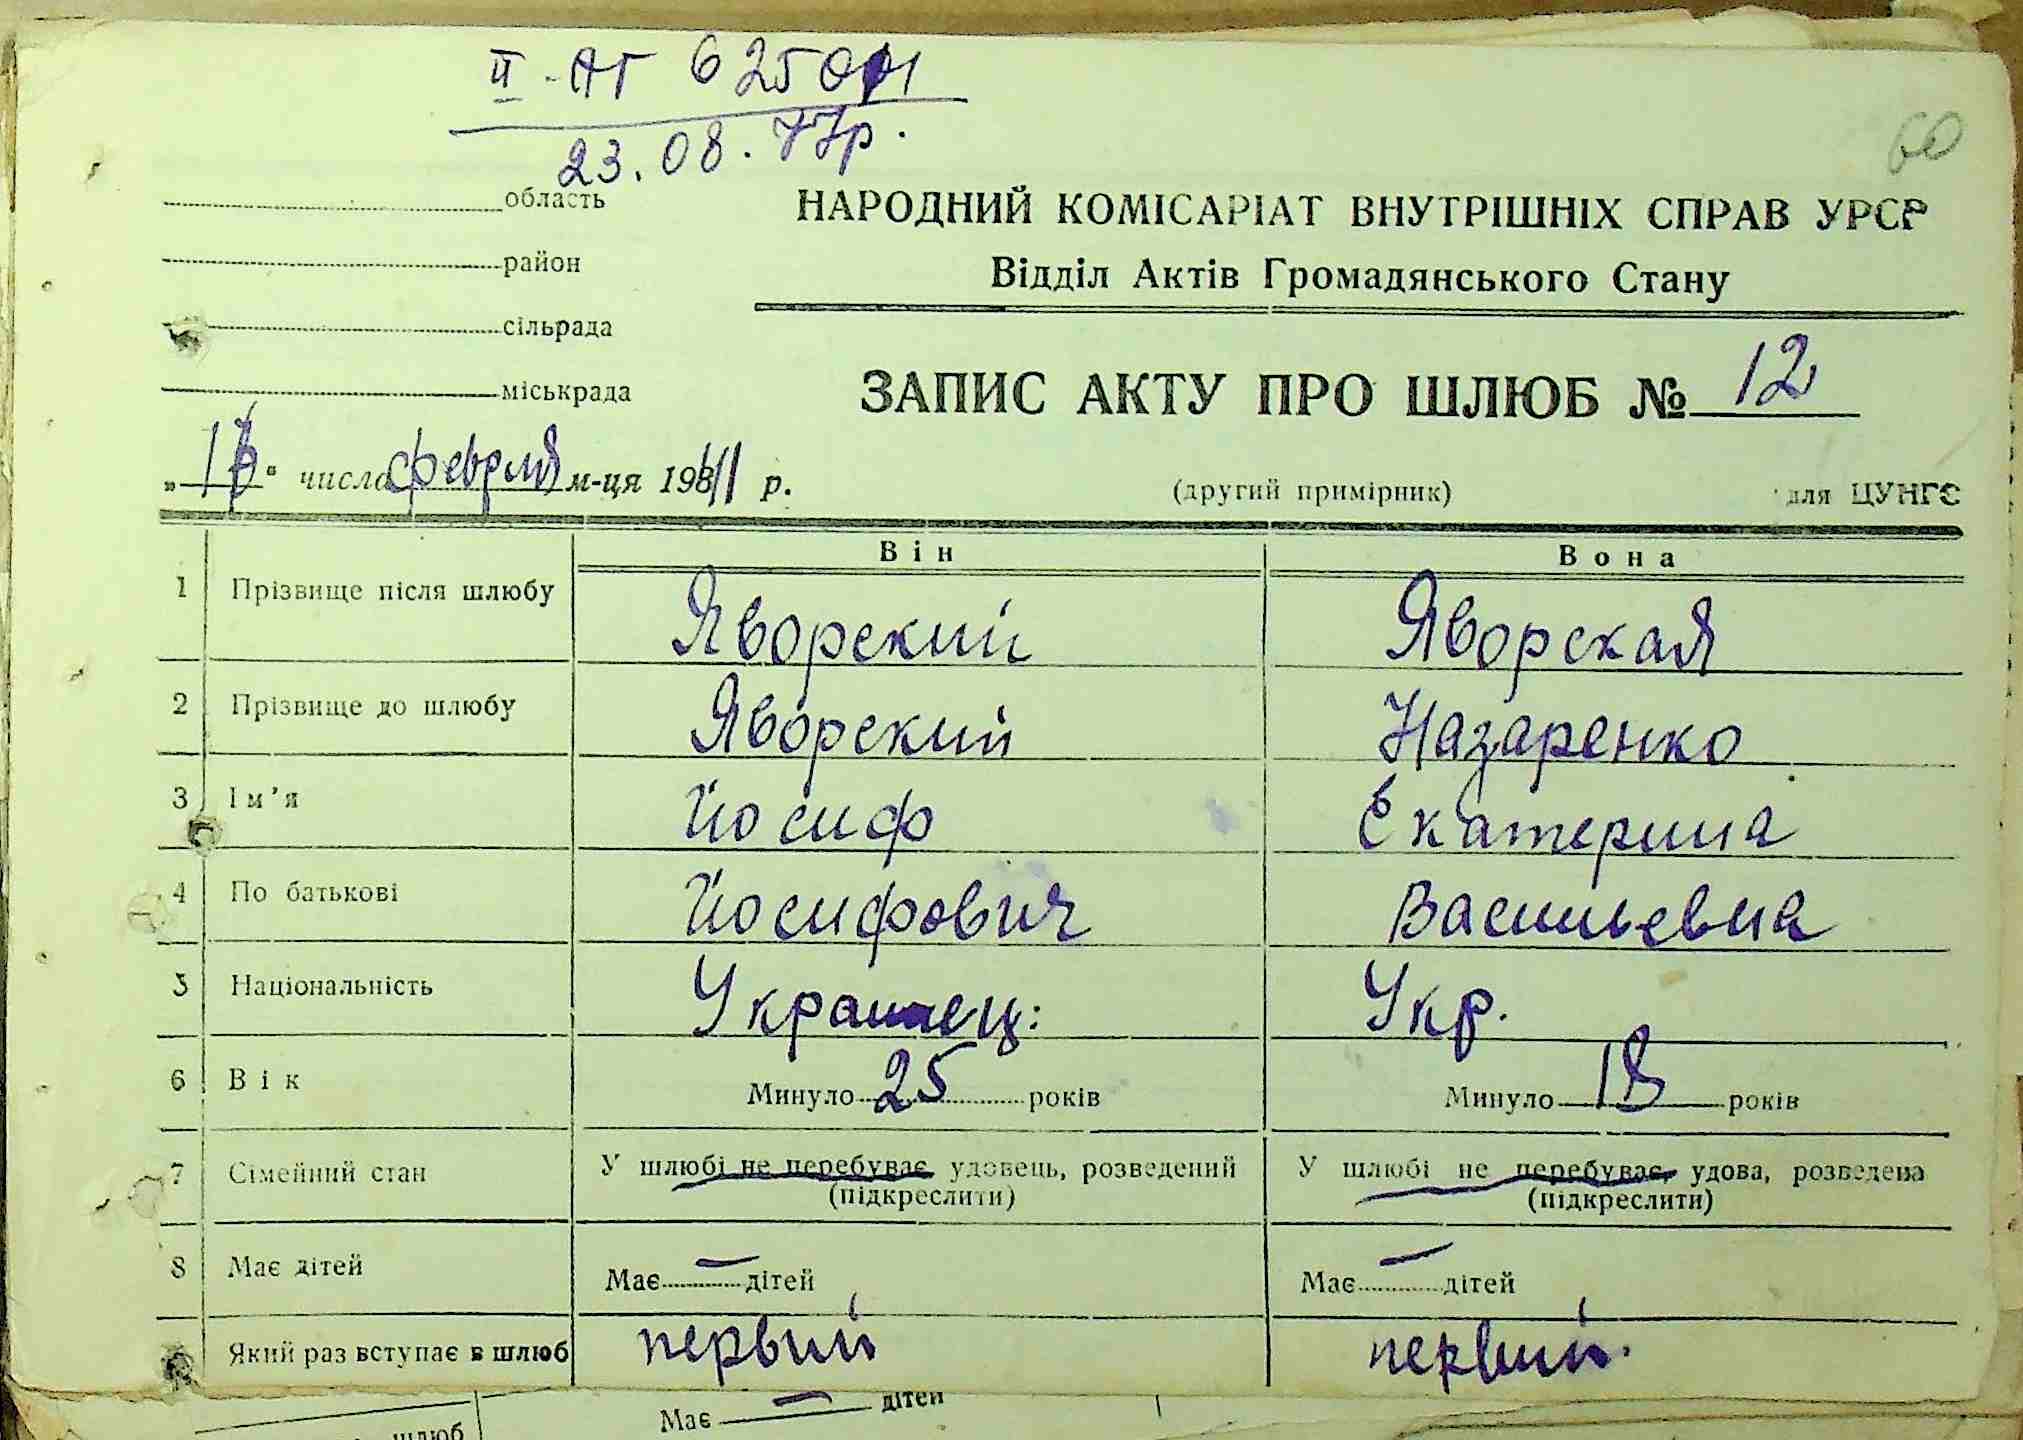 II-АГ 625011
23.08.77р.
60
область
район
сільрада
міськрада
НАРОДНИЙ КОМІСАРІАТ ВНУТРІШНІХ СПРАВ УРСР
Відділ Актів Громадянського Стану
ЗАПИС АКТУ ПРО ШЛЮБ № 12
" " числа февраля м-ця 1941 р.
(другий примірник) для ЦУНГО
Він Вона
1 Прізвище після шлюбу Яворский Яворская
2 Прізвище до шлюбу Яворский Назаренко
3 Ім'я Йосиф Екатерина
4 По батькові Йосифович Васильевна
5 Національність Украинец: Укр.
6 Вік Минуло 25 років Минуло 18 років
7 Сімейний стан У шлюбі не перебуває, удовець, розведений У шлюбі не перебуває, удова, розведена
(підкреслити) (підкреслити)
8 Має дітей Має — дітей Має — дітей
Який раз вступає в шлюб первий первий.
шлюб Має — дітей